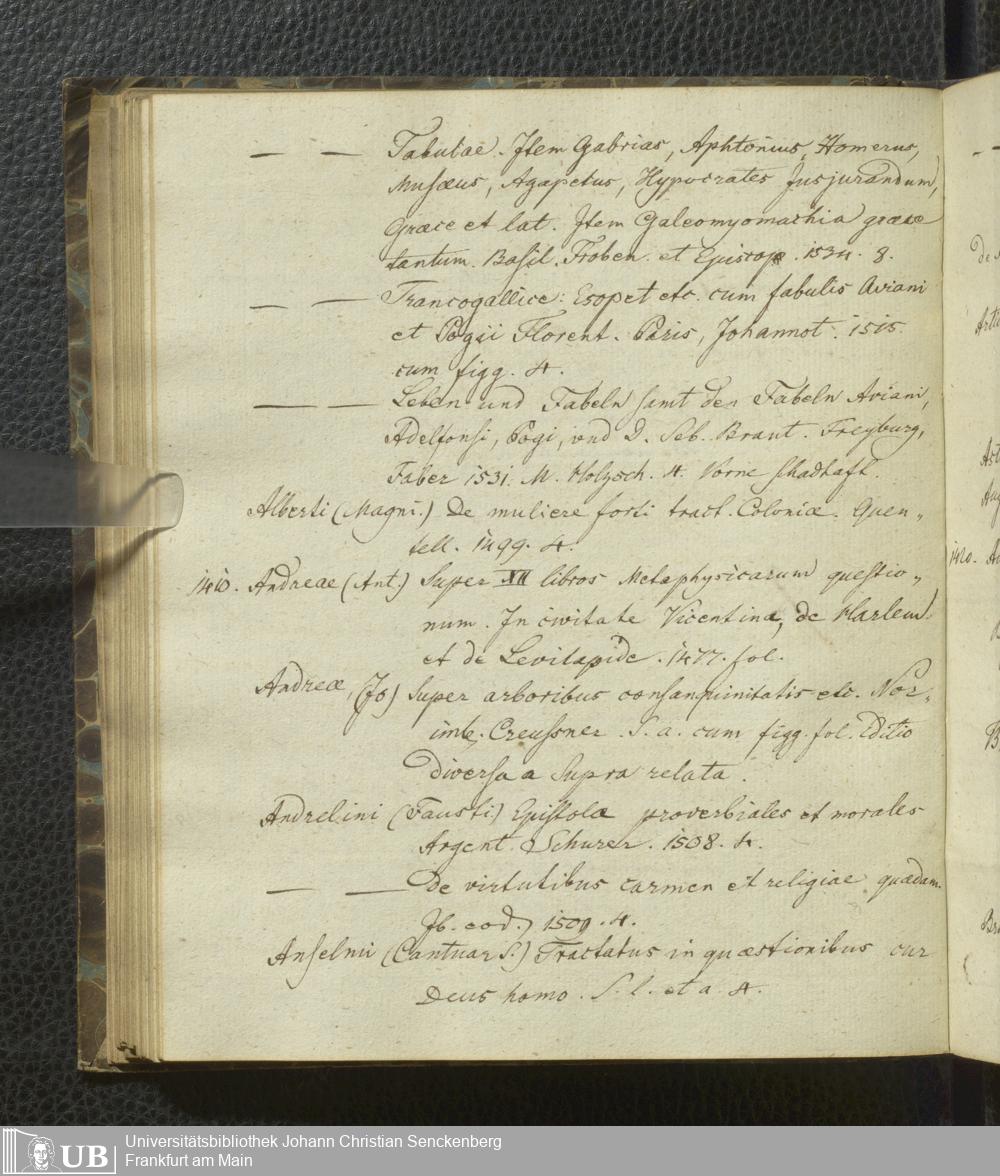 — — Fabulae. Item Gabrias, Aphtonius, Homerus,
Musæus, Agapetus, Hypocrates Jusjurandum,
Græce et lat. Item Galeomyomachia græce
tantum. Basil. Froben. et Episcop. 1534. 8.
— — Francogallice: Esopet etc. cum fabulis Aviani
et Pogii Florent. Paris, Johannot. 1515.
cum figg. 4.
— — Leben und Fabeln samt den Fabeln Aviani,
Adelfonsi, Pogi, vnd D. Seb. Brant. Freyburg,
Faber 1531. M. Holzsch. 4. Vorne schadhaft.
Alberti (Magni.) De muliere forti tract. Coloniæ. Quen„
tell. 1499. 4.
1410. Andreae (Ant.) Super XII libros Metaphysicarum questio„
num. In civitate Vicentina, de Harlem
et de Levilapide. 1477. fol.
Andreæ, (Jo) Super arboribus consanguinitatis etc. Nor„
imb. Creussner. S. a. cum figg. fol. Editio
diversa a supra relata.
Andrelini (Fausti) Epistolæ proverbiales et morales
Argent. Schurer. 1508. 4.
— — De virtutibus carmen et religiae quædam.
Ib. eod. 1509. 4.
Anselmi (Cantuar S.) Tractatus in quæstionibus cur
Deus homo. S. l. et a. 4.
1420.
UB
Universitätsbibliothek Johann Christian Senckenberg
Frankfurt am Main